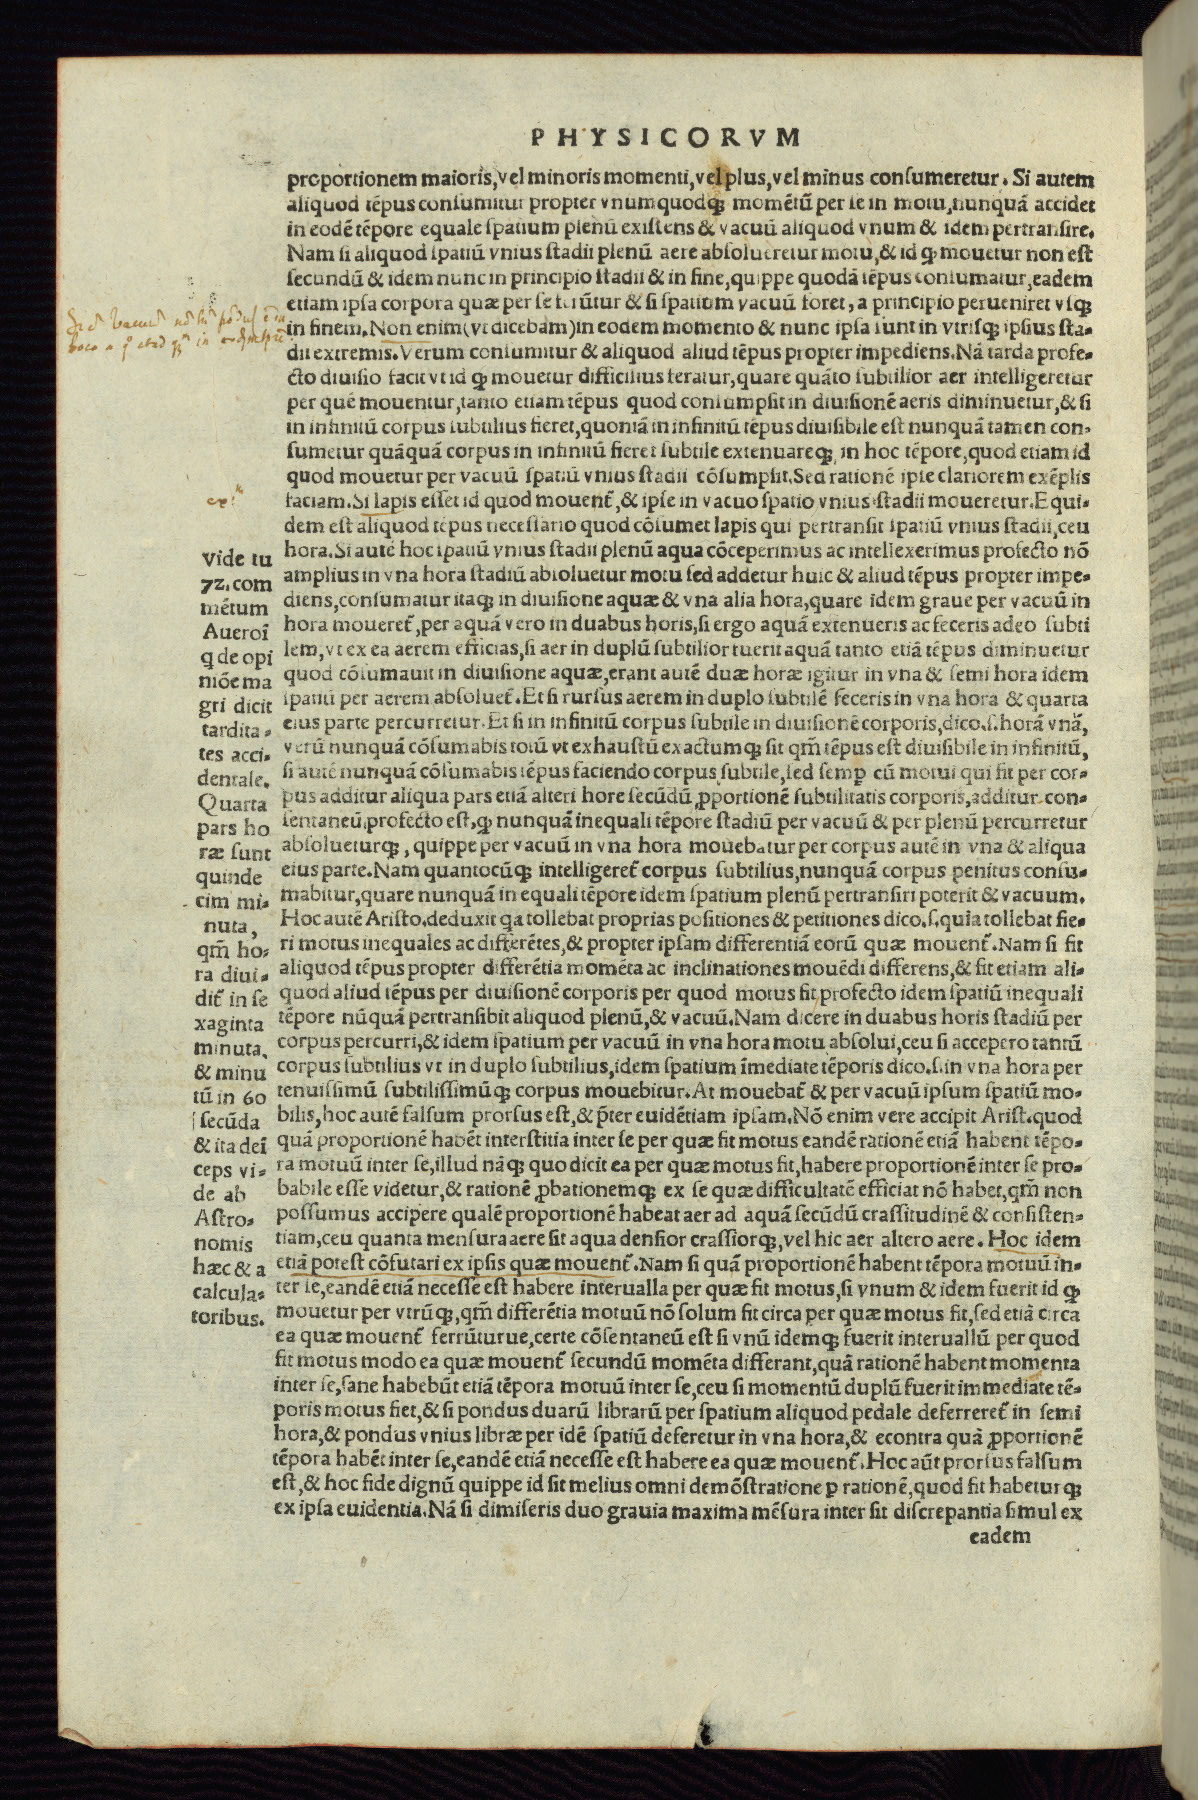 PHYSICORVM
proportionem maioris, vel minoris momenti, vel plus, vel minus consumeretur. Si autem
aliquod tẽpus consumitur propter vnumquodq; momẽtũ per se in motu, nunquã accidet
in eodẽ tẽpore equale spatium plenũ existens & vacuũ aliquod vnum & idem pertransire.
Nam si aliquod spatiũ vnius stadii plenũ aere absolueretur motu, & id qp mouetur non est
secundũ & idem nunc in principio stadii & in fine, quippe quodã tẽpus consumatur, eadem
etiam ipsa corpora quæ per se ferũtur & si spatium vacuũ foret, a principio perueniret vsq;
in finem. Non enim (vt dicebam) in eodem momento & nunc ipsa sunt in vtrisq; ipsius sta-
dii extremis. Verum consumitur & aliquod aliud tẽpus propter impediens. Nã tarda profe-
cto diuisio facit vt id qp mouetur difficilius feratur, quare quãto subtilior aer intelligeretur
per quẽ mouentur, tanto etiam tẽpus quod consumpsit in diuisionẽ aeris diminuetur, & si
in infinitũ corpus subtilius fieret, quoniã in infinitũ tẽpus diuisibile est nunquã tamen con-
sumetur quãquã corpus in infinitũ fieret subtile extenuareq; in hoc tẽpore, quod etiam id
quod mouetur per vacuũ spatiũ vnius stadii cõsumpsit. Sed rationẽ ipse clariorem exẽplis
faciam. Si lapis esset id quod mouent̃, & ipse in vacuo spatio vnius stadii moueretur. Equi-
dem est aliquod tẽpus necessario quod cõsumet lapis qui pertransit spatiũ vnius stadii, ceu
hora. Si autẽ hoc spatiũ vnius stadii plenũ aqua cõceperimus ac intellexerimus profecto nõ
amplius in vna hora stadiũ absoluetur motu sed addetur huic & aliud tẽpus propter impe-
diens, consumatur itaq; in diuisione aquæ & vna alia hora, quare idem graue per vacuũ in
hora moueret̃, per aquã vero in duabus horis, si ergo aquã extenueris ac feceris adeo subti
lem, vt ex ea aerem efficias, si aer in duplũ subtilior fuerit aquã tanto etiã tẽpus diminuetur
quod cõsumauit in diuisione aquæ, erant autẽ duæ horæ igitur in vna & semi hora idem
spatiũ per aerem absoluet̃. Et si rursus aerem in duplo subtilẽ feceris in vna hora & quarta
eius parte percurretur. Et si in infinitũ corpus subtile in diuisionẽ corporis, dico .s. horã vnã,
verũ nunquã cõsumabis totũ vt exhaustũ exactumq; sit qm̃ tẽpus est diuisibile in infinitũ,
si autẽ nunquã cõsumabis tẽpus faciendo corpus subtile, sed semp cũ motui qui fit per cor-
pus additur aliqua pars etiã alteri hore secũdũ ꝓportionẽ subtilitatis corporis, additur con-
sentaneũ, profecto est, qp nunquã inequali tẽpore stadiũ per vacuũ & per plenũ percurretur
absolueturq;, quippe per vacuũ in vna hora mouebatur per corpus autẽ in vna & aliqua
eius parte. Nam quantocũq; intelligeret̃ corpus subtilius, nunquã corpus penitus consu-
mabitur, quare nunquã in equali tẽpore idem spatium plenũ pertransiri poterit & vacuum.
Hoc autẽ Aristo. deduxit qa tollebat proprias positiones & petitiones dico .s. quia tollebat fie-
ri motus inequales ac differẽtes, & propter ipsam differentiã eorũ quæ mouent̃. Nam si fit
aliquod tẽpus propter differẽtia momẽta ac inclinationes mouẽdi differens, & fit etiam ali-
quod aliud tẽpus per diuisionẽ corporis per quod motus fit profecto idem spatiũ inequali
tẽpore nũquã pertransibit aliquod plenũ, & vacuũ. Nam dicere in duabus horis stadiũ per
corpus percurri, & idem spatium per vacuũ in vna hora motu absolui, ceu si accepero tantũ
corpus subtilius vt in duplo subtilius, idem spatium ĩmediate tẽporis dico .s. in vna hora per
tenuissimũ subtilissimũq; corpus mouebitur. At mouebat̃ & per vacuũ ipsum spatiũ mo-
bilis, hoc autẽ falsum prorsus est, & p̃ter euidẽtiam ipsam. Nõ enim vere accipit Arist. quod
quã proportionẽ habẽt interstitia inter se per quæ fit motus eandẽ rationẽ etiã habent tẽpo-
ra motuũ inter se, illud nãq; quo dicit ea per quæ motus fit, habere proportionẽ inter se pro-
babile esse videtur, & rationẽ ꝓbationemq; ex se quæ difficultatẽ efficiat nõ habet, qm̃ non
possumus accipere qualẽ proportionẽ habeat aer ad aquã secũdũ crassitudinẽ & consisten-
tiam, ceu quanta mensura aere sit aqua densior crassiorq;, vel hic aer altero aere. Hoc idem
etiã potest cõfutari ex ipsis quæ mouent̃. Nam si quã proportionẽ habent tẽpora motuũ in-
ter se, eandẽ etiã necesse est habere interualla per quæ fit motus, si vnum & idem fuerit id qp
mouetur per vtrũq;, qm̃ differẽtia motuũ nõ solum fit circa per quæ motus fit, sed etiã circa
ea quæ mouent̃ ferrũturue, certe cõsentaneũ est si vnũ idemq; fuerit interuallũ per quod
fit motus modo ea quæ mouent̃ secundũ momẽta differant, quã rationẽ habent momenta
inter se, sane habebũt etiã tẽpora motuũ inter se, ceu si momentũ duplũ fuerit immediate tẽ-
poris motus fiet, & si pondus duarũ librarũ per spatium aliquod pedale deferreret̃ in semi
hora, & pondus vnius libræ per idẽ spatiũ deferetur in vna hora, & econtra quã ꝓportionẽ
tẽpora habẽt inter se, eandẽ etiã necesse est habere ea quæ mouent̃. Hoc aũt prorsus falsum
est, & hoc fide dignũ quippe id sit melius omni demõstratione p rationẽ, quod fit habeturq;
ex ipsa euidentia. Nã si dimiseris duo grauia maxima mẽsura inter sit discrepantia simul ex
eadem
Vide tu
72. com
mẽtum
Aueroĩ
q de opi
niõe ma
gri dicit
tardita-
tes acci-
dentale.
Quarta
pars ho
ræ sunt
quinde
cim mi-
nuta,
qm̃ ho-
ra diui-
dit̃ in se
xaginta
minuta,
& minu
tũ in 60
secũda
& ita deĩ
ceps vi-
de ab
Astro-
nomis
hæc & a
calcula-
toribus.